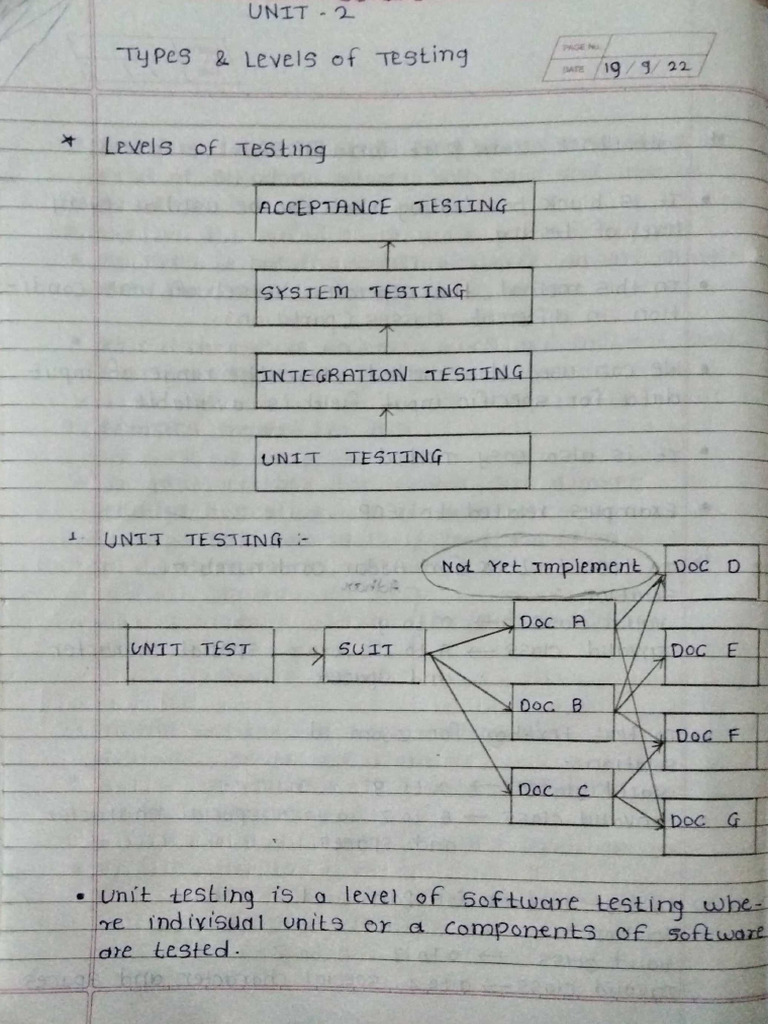 UNIT - 2
Types & Levels of Testing
PAGE No.
DATE 19 / 9 / 22
* Levels of Testing
ACCEPTANCE TESTING
SYSTEM TESTING
INTEGRATION TESTING
UNIT TESTING
1. UNIT TESTING :-
Not Yet Implement
DOC D
DOC A
UNIT TEST
SUIT
DOC E
DOC B
DOC F
DOC C
DOC G
• Unit testing is a level of software testing whe-
re indivisual units or a components of software
are tested.